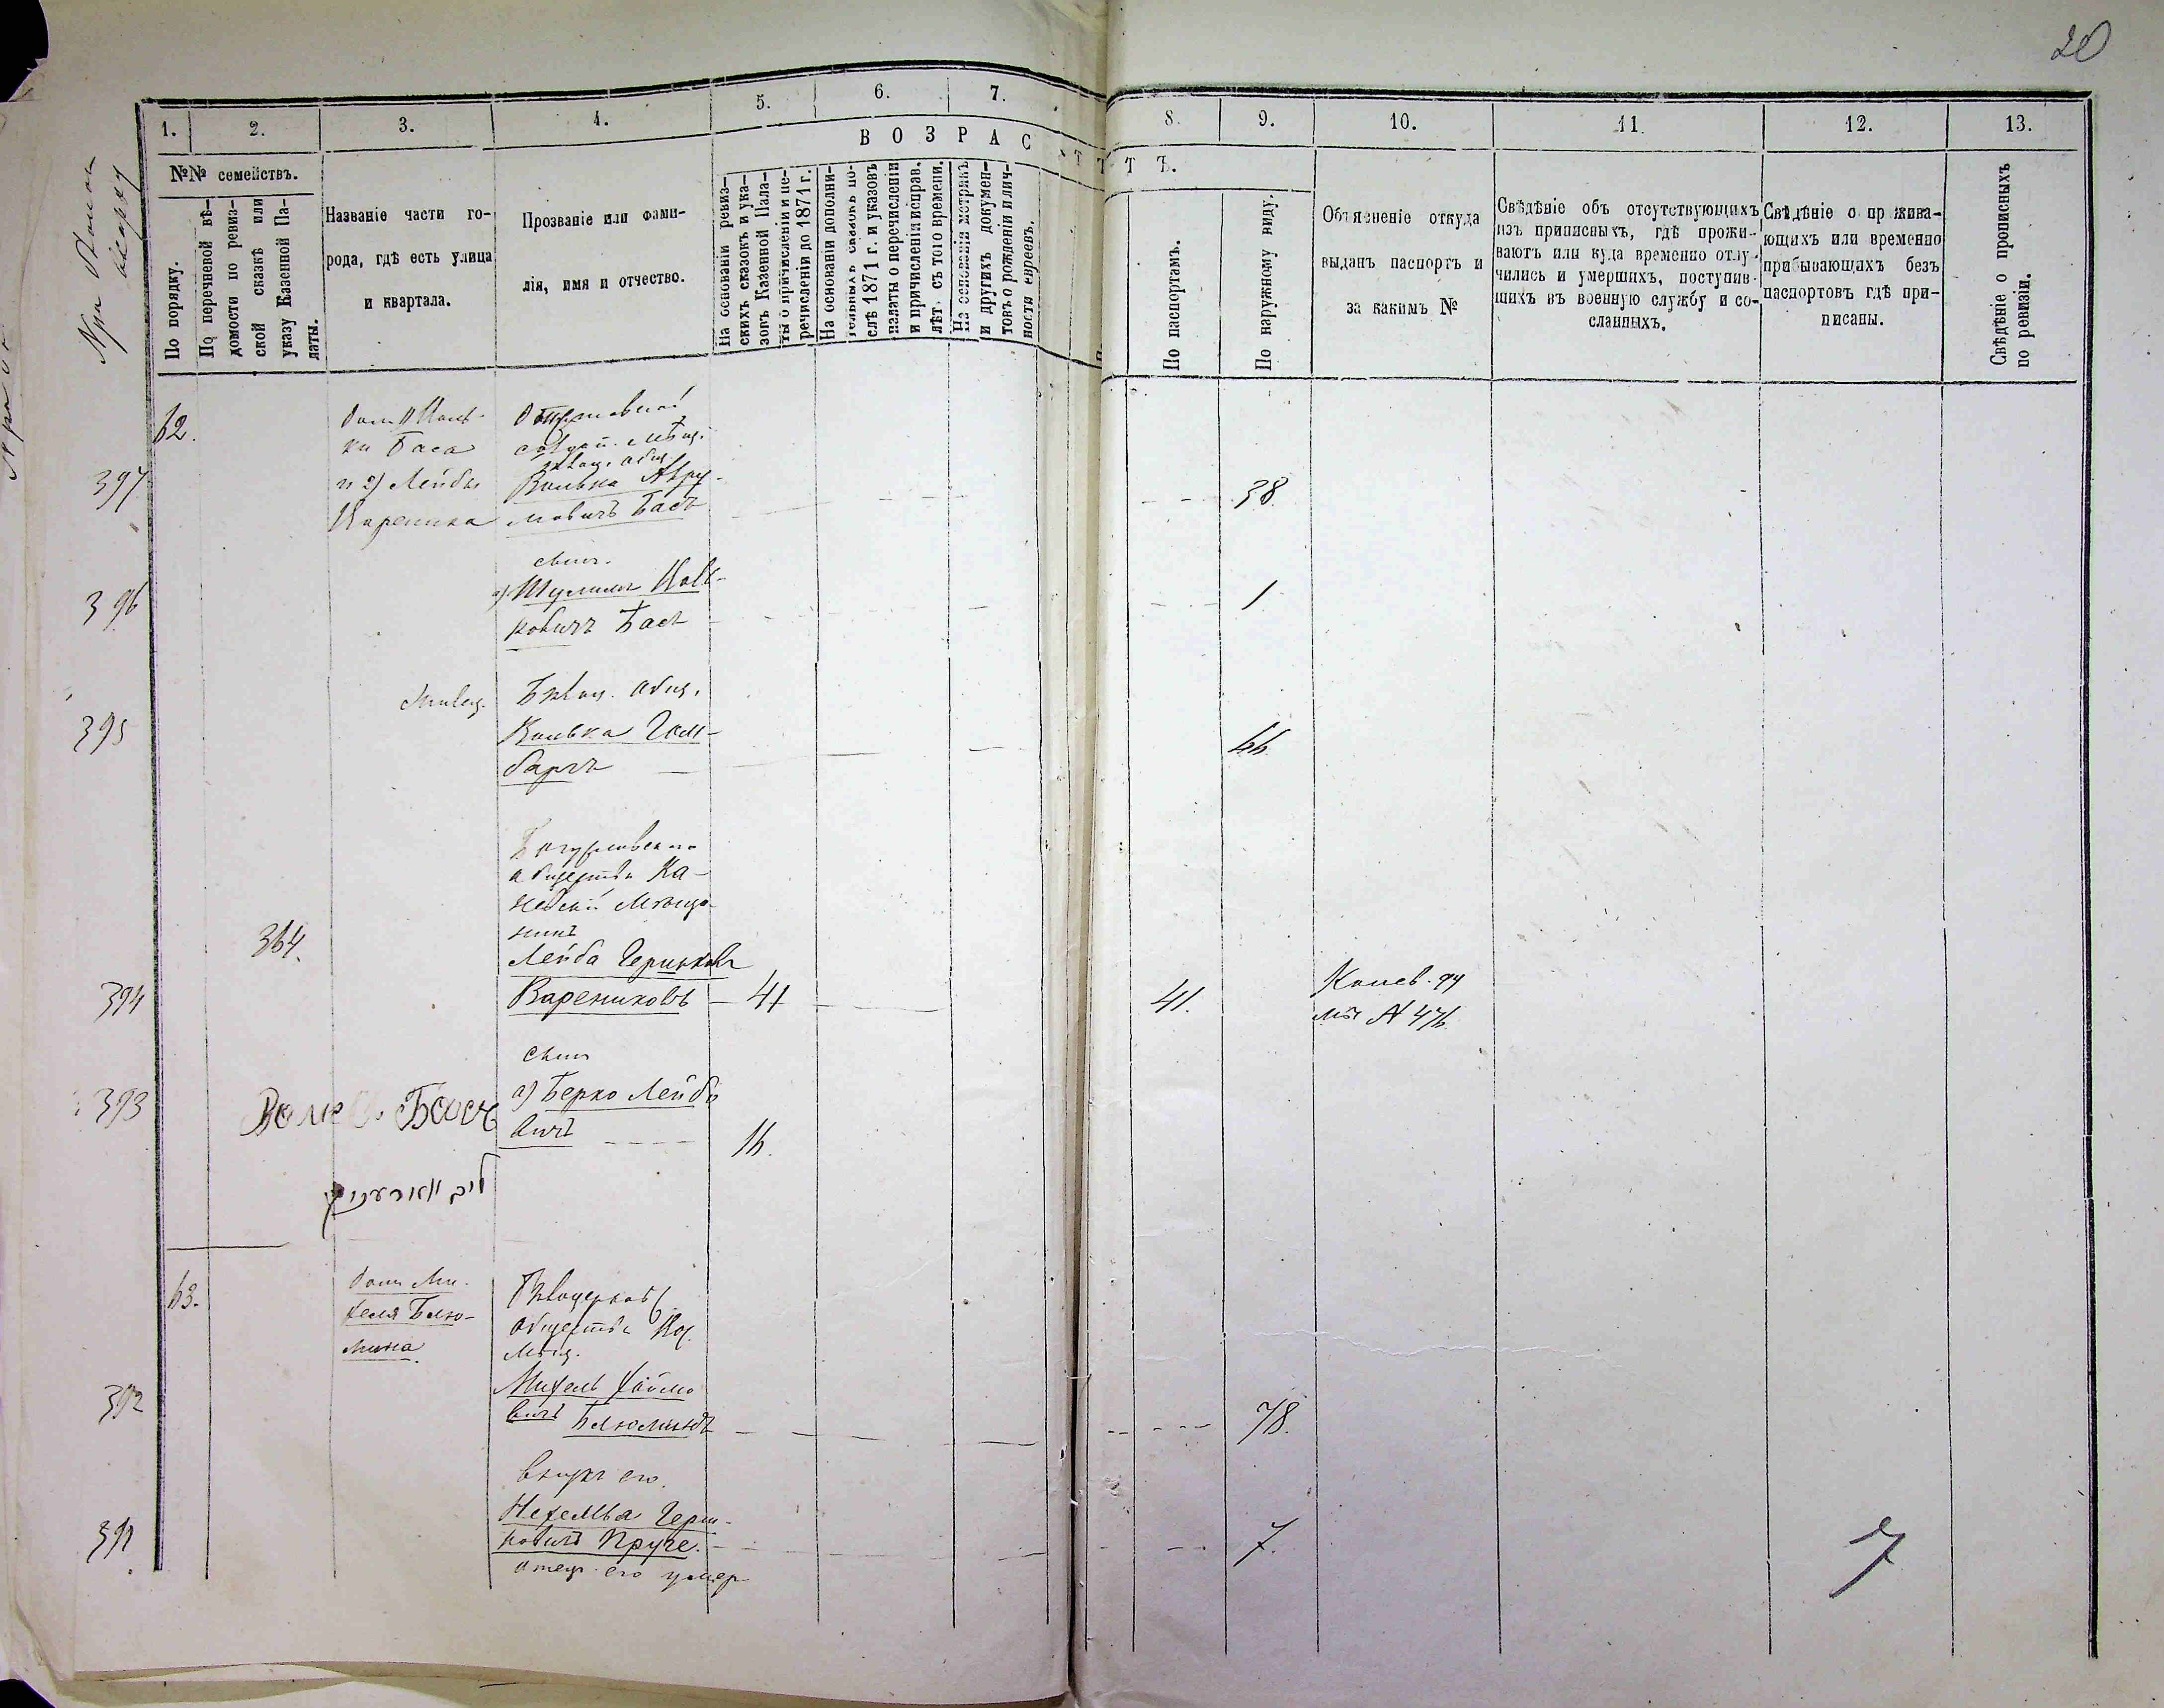 20
1.
2.
3.
4.
5.
6.
7.
8.
9.
10.
11.
12.
13.
В О З Р А С Т Ъ.
№№ семействъ.
По порядку.
По перечневой вѣ-
домости по ревиз-
ской сказкѣ или
указу Казенной Па-
латы.
Названіе части го-
рода, гдѣ есть улица
и квартала.
Прозваніе или фами-
лія, имя и отчество.
На основаніи ревиз-
скихъ сказокъ и ука-
зовъ Казенной Пала-
ты о причисленіи и пе-
речисленіи до 1871 г.
На основаніи дополни-
тельныхъ сказокъ по-
слѣ 1871 г. и указовъ
палаты о перечисленіи
и причисленіи исправ.
лѣт. съ того времени.
На основаніи метрикъ
и другихъ докумен-
товъ о рожденіи и лич-
ности евреевъ.
По паспортамъ.
По наружному виду.
Объясненіе откуда
выданъ паспортъ и
за какимъ №
Свѣдѣніе объ отсутствующихъ
изъ приписныхъ, гдѣ прожи-
ваютъ или куда временно отлу-
чились и умершихъ, поступив-
шихъ въ военную службу и со-
сланныхъ.
Свѣдѣніе о прожива-
ющихъ или временно
прибывающихъ безъ
паспортовъ гдѣ при-
писаны.
Свѣдѣніе о прописныхъ
по ревизіи.
62.
Баса
и 2) Лейбы
397
Волька Авру-
мовичъ Басъ
38
сынъ.
396
а) Шулимъ Воль-
ковичъ Басъ
1
395
Волька Гом-
бергъ
66
общества Ка-
невскій Мѣща-
нинъ
364.
Лейба Гершковъ
394
Варениковъ — 41
41.
Канев. гу
№ 476
сынъ
393
а) Берко Лейбо
вичъ
16.
Басъ
לייב ווארעניק
63.
домъ Ми-
хеля Блю-
мина
общества
Мѣщ.
392
Михель Хаимо
вичъ Блюминъ
78.
внукъ его.
391
Нехемья Герш-
ковичъ Пруге.
7.
7
отецъ его умер